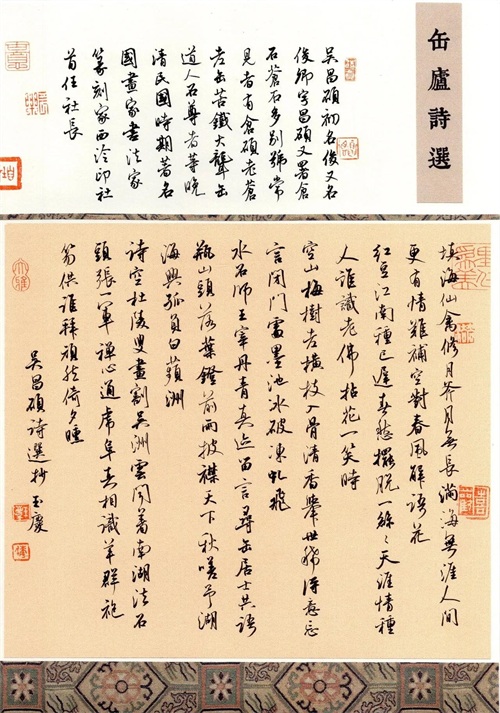 缶廬詩選
吳昌碩初名俊又名
俊卿字昌碩又署倉
石蒼石多别號常
見者有倉碩老蒼
老缶苦鐵大聾缶
道人石尊者等晚
清民國時期著名
國畫家書法家
篆刻家西泠印社
首任社長
填海仙禽修月斧月無長滿海無涯人間
更有情難補空對春風解語花
紅豆江南種已遲春愁擺脫一絲〻天涯情種
人誰識老佛拈花一笑時
空山梅樹老橫枝入骨清香舉世稀得意忘
言閉門處墨池冰破凍虬飛
水石師王宰丹青真迹留言尋缶居士共語
瓶山頭落葉鐙前雨披襟天下秋嗟予湖
海興孤負白蘋洲
詩空杜陵叟畫割吳洲雲開著南湖法石
頭張一軍禪心通虎阜真相識羊群袍
笏供誰拜頑然倚夕曛
吳昌碩詩選抄 玉慶